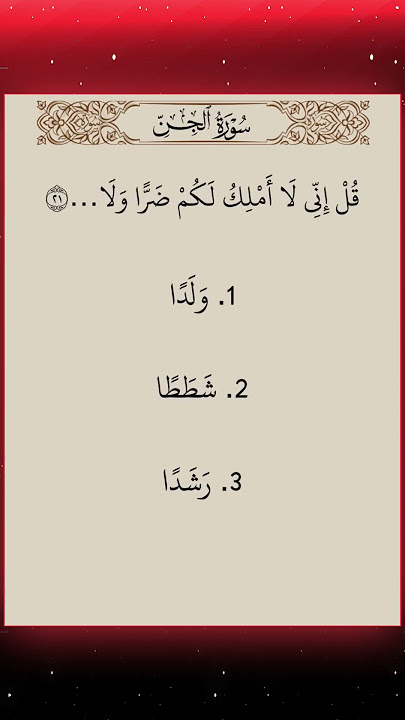 سُورَةُ الجِنّ
قُلْ إِنِّى لَا أَمْلِكُ لَكُمْ ضَرًّا وَلَا... ٢١
1. وَلَدًا
2. شَطَطًا
3. رَشَدًا